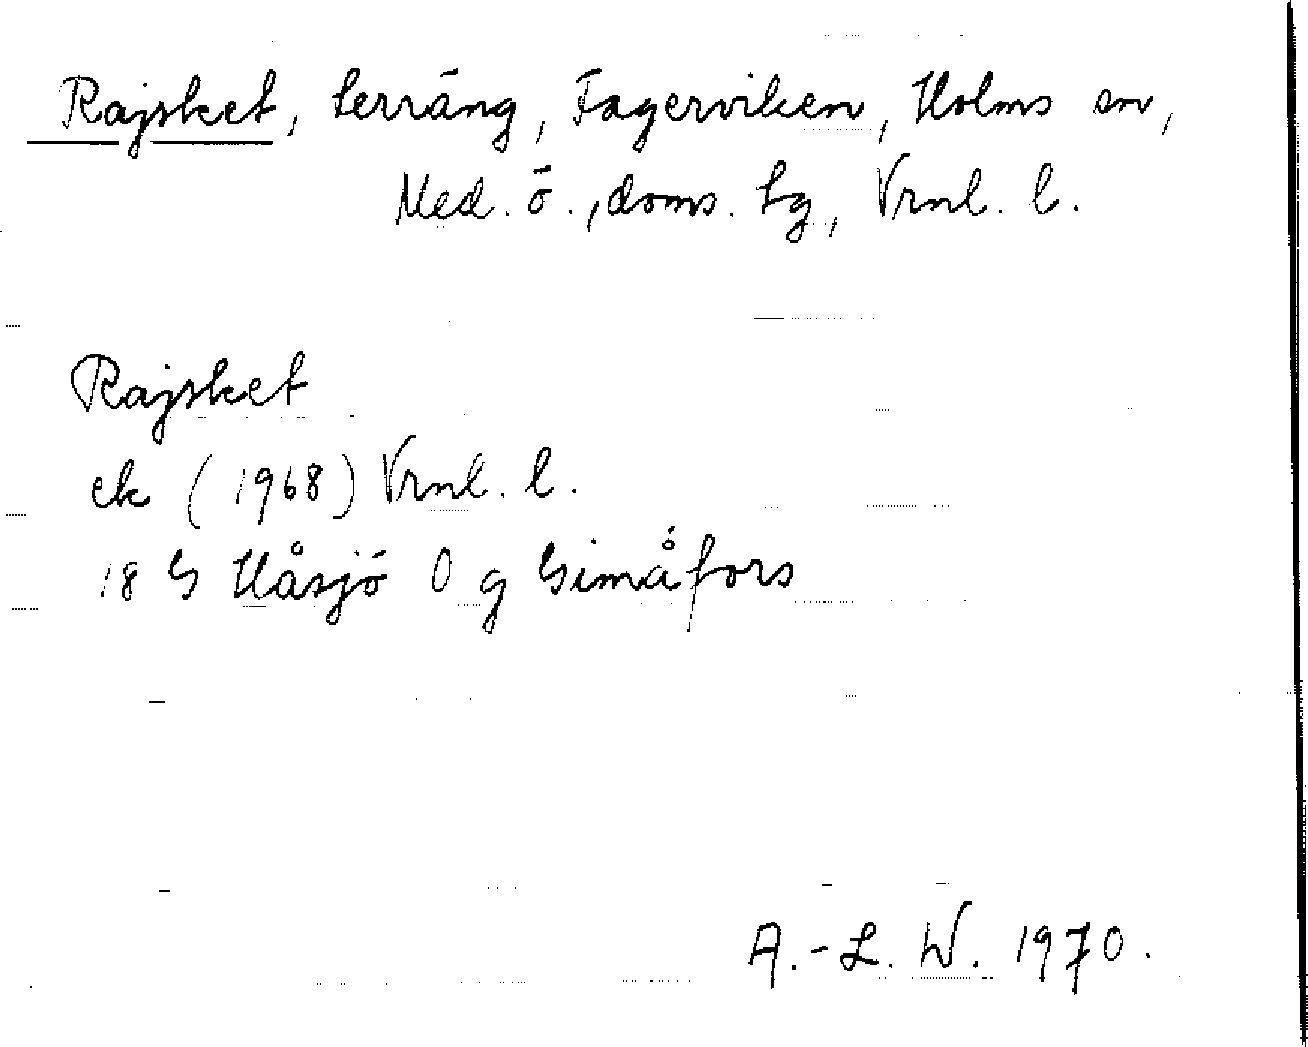 Rajsket, terräng, Fagerviken, Holms sn,
Med. ö., doms. Lg, Vrnl. l.
Rajsket
ek (1968) Vrnl. l.
18 G Håsjö 0 g Gimåfors
A.-L. W. 1970.